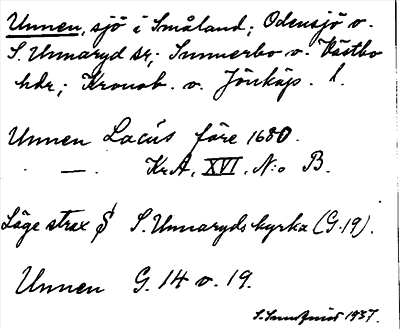 Unnen, sjö i Småland; Odensjö o.
S. Unnaryd sr; Sunnerbo o. Västbo
hdr; Kronob. o. Jönköp. l.
Unnen Lacus före 1680.
— Kr.A. XVI. N:o B.
Läge strax S. Unnaryds kyrka (G.19).
Unnen G. 14 o. 19.
1937.